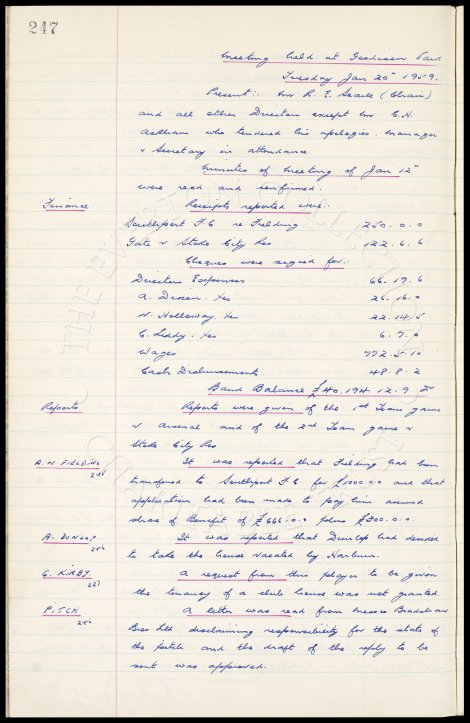 247
Meeting held at Goodison Park
Tuesday Jan 20th 1959.
Present:- Mr R. E. Searle (Chair)
and all other Directors except Mr C. H.
Askham who tendered his apologies. Manager
& Secretary in attendance.
Minutes of Meeting of Jan 12th
were read and confirmed.
Finance Receipts reported were:-
Southport F.C re Fielding 250.0.0
Gate v Stoke City Res 122.6.6
Cheques were signed for:-
Directors Expenses 66.19.6
A. Dixon. 26.16.0
N. Holloway. 22.14.5
C. Leddy. 6.7.6
Wages 772.5.10
Cash Disbursements 48.8.2
Bank Balance £40,194.12.9
Reports Reports were given of the 1st Team game
v Arsenal and of the 2nd Team game v
Stoke City Res
A. W. FIELDING It was reported that Fielding had been
transferred to Southport F.C for £1000.0.0 and that
application had been made to pay him accrued
share of Benefit of £666.0.0 plus £300.0.0.
A. DUNLOP It was reported that Dunlop had decided
to take the house vacated by Harburn.
G. KIRBY A request from this player to be given
227 the tenancy of a club house was not granted.
PITCH A letter was read from Messrs Bradshaw
Bros Ltd disclaiming responsibility for the state of
the pitch and the draft of the reply to be
sent was approved.